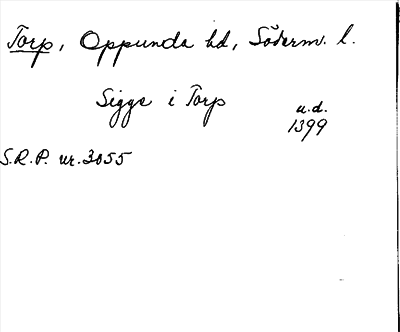 Torp, Oppunda hd, Söderm. l.
Sigge i Torp u.d.
1399
S.R.P. nr. 3055